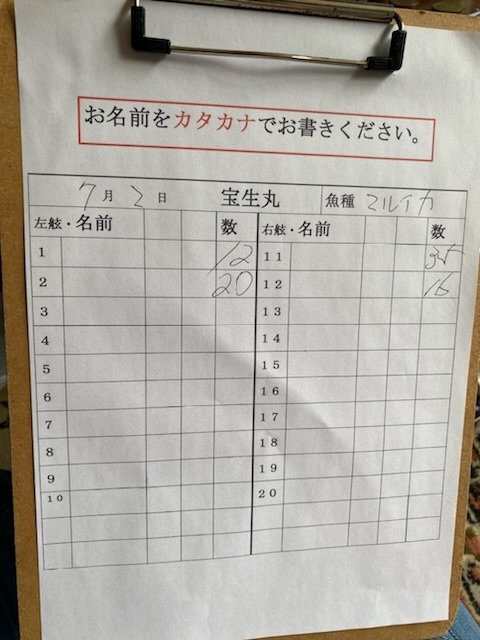 お名前をカタカナでお書きください。
7月2日 宝生丸 魚種 マルイカ
左舷・名前 数 右舷・名前 数
1 12 11 35
2 20 12 16
3 13
4 14
5 15
6 16
7 17
8 18
9 19
10 20